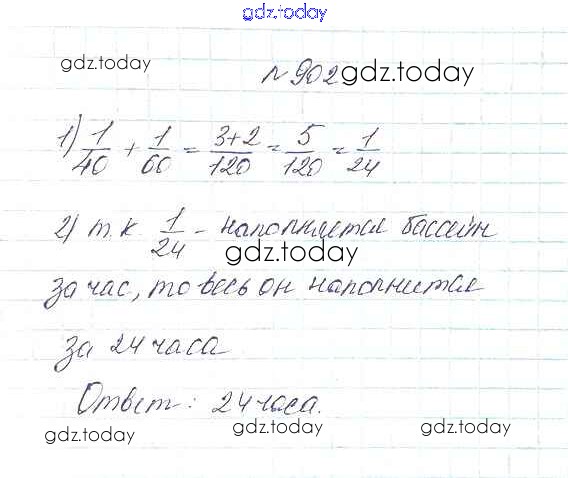 gdz.today
gdz.today
№ 902 gdz.today
1) 1/40 + 1/60 = 3+2/120 = 5/120 = 1/24
2) т.к. 1/24 - наполняется бассейн
gdz.today
за час, то весь он наполнится
за 24 часа
Ответ: 24 часа.
gdz.today gdz.today gdz.today